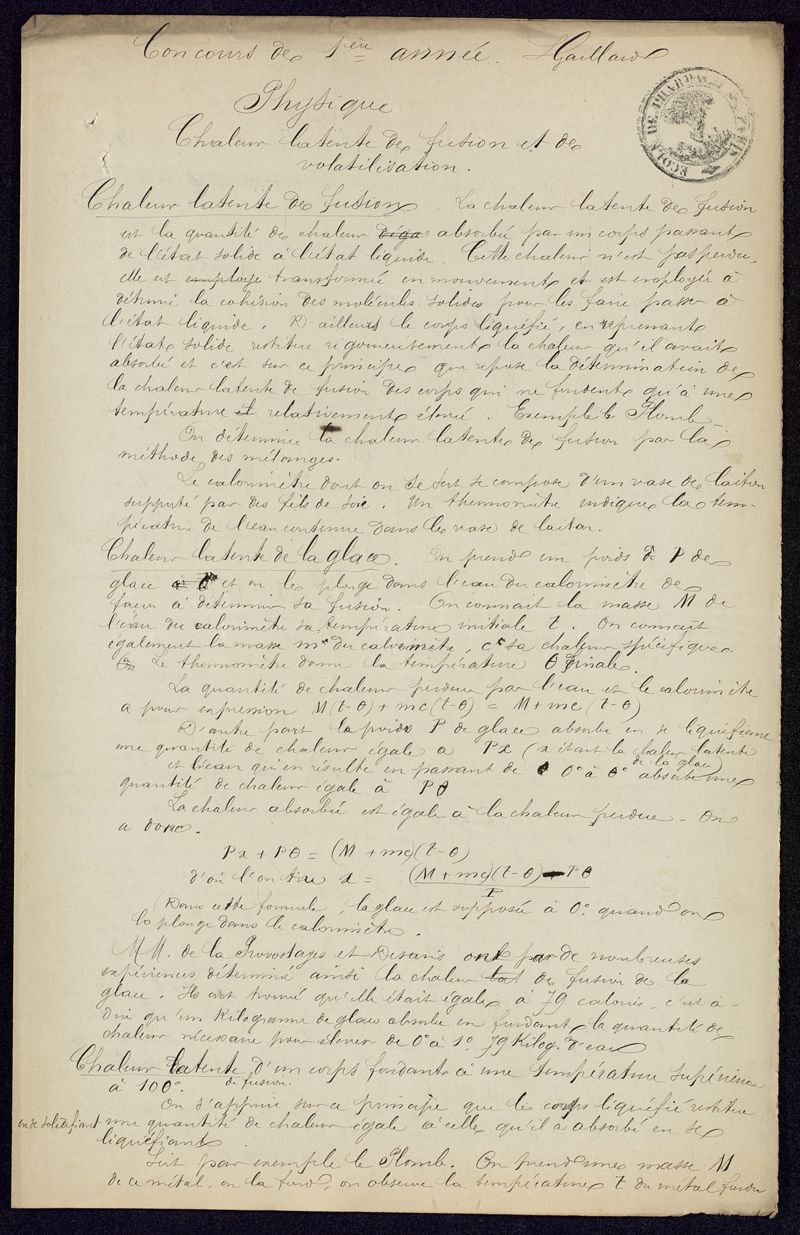 Concours de 1ère année. Gaillard
ECOLE DE PHARMACIE PARIS
Physique
Chaleur latente de fusion et de
volatilisation.
Chaleur latente de fusion La chaleur latente de fusion
est la quantité de chaleur absorbée par un corps passant
de l'état solide à l'état liquide. Cette chaleur n'est pas perdue,
elle est employé transformée en mouvement et est employée à
détruire la cohésion des molécules solides pour les faire passer à
l'état liquide. D'ailleurs le corps liquéfié, en reprenant
l'état solide restitue rigoureusement la chaleur qu'il avait
absorbé et c'est sur ce principe que repose la détermination de
la chaleur latente de fusion des corps qui ne fondent qu'à une
température et relativement élevée. Exemple le Plomb
On détermine la chaleur latente de fusion par la
méthode des mélanges.
Le calorimètre dont on se sert se compose d'un vase de laiton
supporté par des fils de soie. Un thermomètre indique la tem-
pérature de l'eau contenue dans le vase de laiton.
Chaleur latente de la glace. On prend un poids P de
glace et on le plonge dans l'eau du calorimètre de
façon à déterminer sa fusion. On connait la masse M de
l'eau du calorimètre sa température initiale t. On connait
également la masse m du calorimètre, c sa chaleur spécifique.
Le thermomètre donne la température θ finale.
La quantité de chaleur perdue par l'eau et le calorimètre
a pour expression M(t-θ) + mc(t-θ) = M+mc(t-θ)
D'autre part le poids P de glace absorbe en se liquéfiant
une quantité de chaleur égale a Px (x étant la chaleur latente
de la glace)
et l'eau qui en résulte en passant de 0° à θ° absorbe une
quantité de chaleur égale à Pθ
La chaleur absorbée est égale à la chaleur perdue - On
a donc.
Px + Pθ = (M + mc)(t-θ)
d'où l'on tire x = (M+mc)(t-θ) - Pθ
P
Dans cette formule, la glace est supposée à 0° quand on
la plonge dans le calorimètre.
MM. de la Provostages et Desains ont par de nombreuses
expériences déterminé ainsi la chaleur lat de fusion de la
glace. Ils ont trouvé qu'elle était égale à 79 calories, c'est à-
dire qu'un Kilogramme de glace absorbe en fondant la quantité de
chaleur nécessaire pour élever de 0° à 1° 79 Kilog. d'eau
Chaleur latente d'un corps fondant à une température supérieure
de fusion.
à 100°.
On s'appuie sur ce principe que le corps liquéfié restitue
en se solidifiant une quantité de chaleur égale à celle qu'il a absorbé en se
liquéfiant
Soit par exemple le Plomb. On prend une masse M
de ce métal, on la fond, on observe la température t du métal fondu